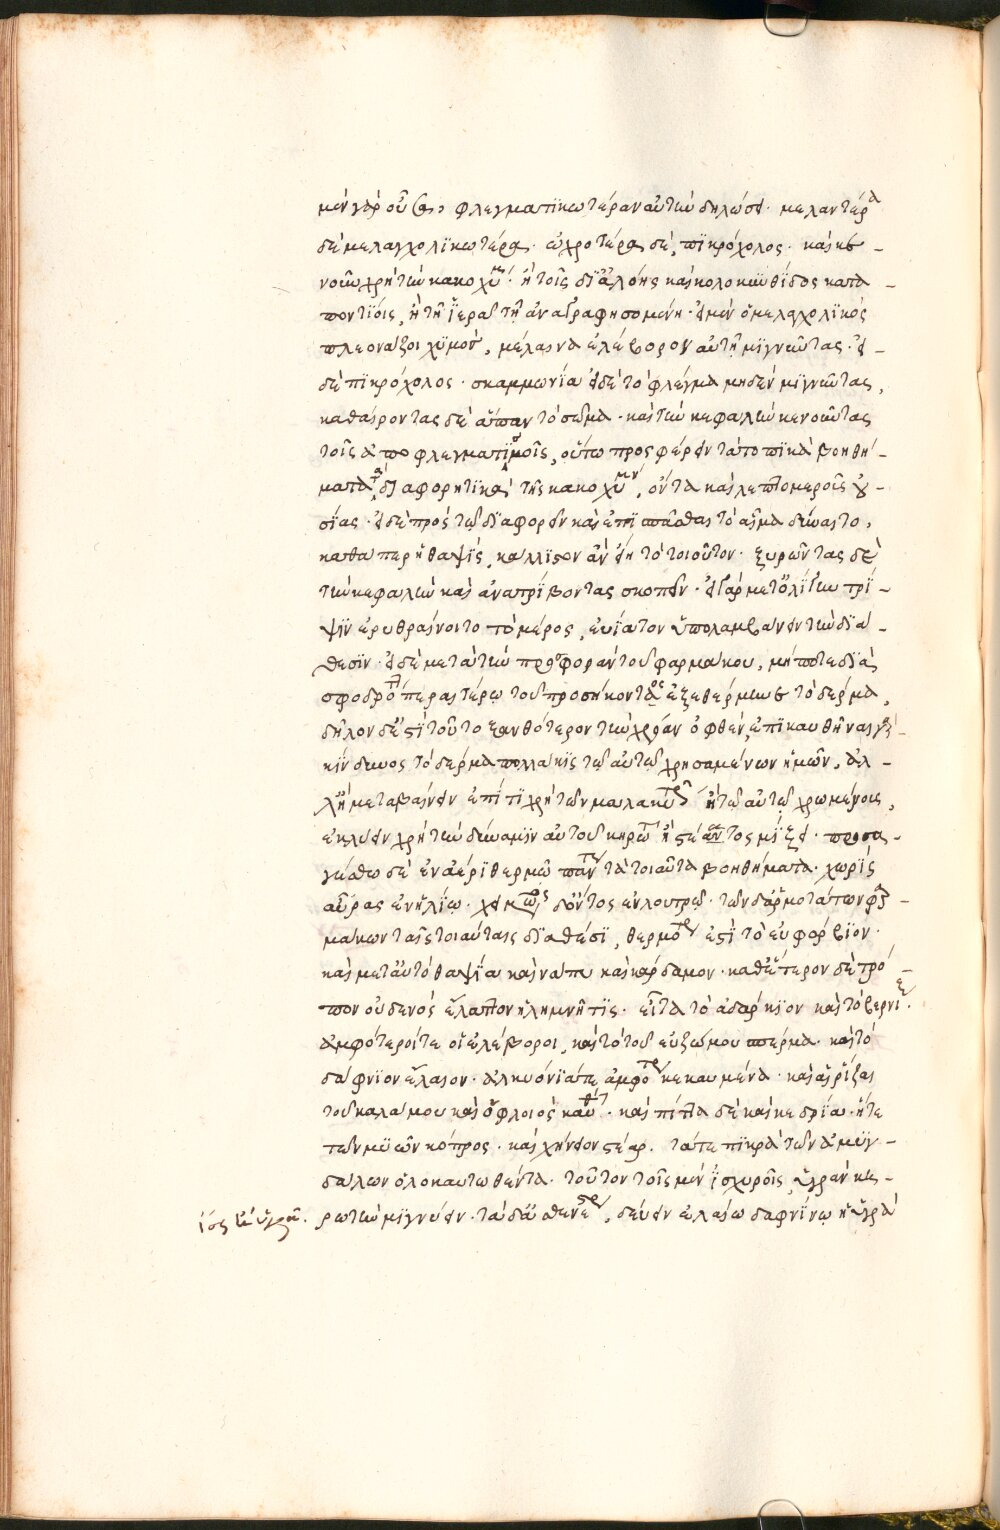 μὲν γὰρ οὖσαν φλεγματικωτέραν αὐτὴν δηλώσει· μελαντέρα
δὲ μελαγχολικωτέρα· ὠχροτέρα δὲ, πικρόχολος· καὶ κε-
νοῦν χρὴ τὴν κακοχυμίαν· ἢ τοῖς δι' ἀλόης καὶ κολοκυνθίδος καταποτίοις
ποντίοις, ἢ τῇ ἱερᾷ τῇ ἀναγραφησομένῃ· εἰ μὲν ὁ μελαγχολικὸς
πλεονάζοι χυμὸς, μέλανα ἐλέβορον αὐτῇ μιγνῦντας· εἰ
δὲ πικρόχολος· σκαμμωνία εἰ δὲ τὸ φλέγμα μηδὲν μιγνῦντας,
καθαίροντας δὲ ἅπαν τὸ σῶμα· καὶ τὴν κεφαλὴν κενοῦντας
τοῖς ἀποφλεγματισμοῖς, οὕτω προσφέρειν τὰ τοπικὰ βοηθή-
ματα, τὰ διαφορητικὰ τῆς κακοχυμίας, ὄντα καὶ λεπτομεροῦς οὐ-
σίας· εἰ δὲ πρὸς τῷ διαφορεῖν καὶ ἐπισπᾶσθαι τὸ αἷμα δύναιτο,
καθάπερ ἡ θαψία, κάλλιστον ἂν εἴη τὸ τοιοῦτον· ξυρῶντας δὲ
τὴν κεφαλὴν καὶ ἀνατρίβοντας σκοπεῖν· εἰ γὰρ μετ' ὀλίγην τρί-
ψιν ἐρυθραίνοιτο τὸ μέρος, εὐίατον ὑπολαμβάνειν τὴν διά-
θεσιν· εἰ δὲ μετὰ τὴν προσφορὰν τοῦ φαρμάκου, μήποτε διὰ
σφοδρότητα περαιτέρω τοῦ προσήκοντος ἐξεθέρμηνε τὸ δέρμα,
δῆλον δέ ἐστι τοῦτο ξανθότερον τὴν χρόαν ὀφθὲν, ἐπικαυθῆναι γὰρ
κινδυνος τὸ δέρμα πολλάκις τῷ αὐτῷ χρησαμένων ἡμῶν, ἀλ-
λ' ἢ μεταβαίνειν ἐπί τι χρὴ τῶν μαλακωτέρων ἢ τῷ αὐτῷ χρωμένοις,
ἐκλύειν χρὴ τὴν δύναμιν αὐτοῦ κηρωτῆς ἢ στέατος μίξει· προσα-
γέσθω δὲ ἐν ἀέρι θερμῷ πάντα τὰ τοιαῦτα βοηθήματα· χωρὶς
αὔρας ἐν ἡλίῳ· χειμῶνος δ' ὄντος ἐν λουτρῷ· τῶν δ' ἁρμοττόντων φαρ-
μάκων ταῖς τοιαύταις διαθέσεσι, θερμότατόν ἐστι τὸ εὐφόρβιον·
καὶ μετ' αὐτὸ θαψία καὶ νάπυ καὶ κάρδαμον· καθ' ἕτερον δὲ τρό-
πον οὐδενὸς ἔλαττον ἡ λημνῆτις· εἶτα τὸ ἀδάρκιον καὶ τὸ βερνίκιον·
ἀμφότεροί τε οἱ ἐλέβοροι, καὶ τὸ τοῦ εὐζώμου σπέρμα· καὶ τὸ
δάφνινον ἔλαιον· ἀλκυόνιά τε ἀμφότερα κεκαυμένα· καὶ αἱ ῥίζαι
τοῦ καλάμου καὶ ὁ φλοιὸς καυθείς· καὶ πίττα δὲ καὶ κεδρία· ἥ τε
τῶν μυῶν κόπρος· καὶ χήνειον στέαρ. τά τε πικρὰ τῶν ἀμυγ-
δάλων ὁλοκαυτωθέντα· τούτων τοῖς μὲν ἰσχυροῖς, ὑγρὰν κη-
ρωτὴν μιγνύειν· τὰ δὲ ἀσθενέστερα, δεύειν ἐλαίῳ δαφνίνῳ ἢ ὑγρᾷ